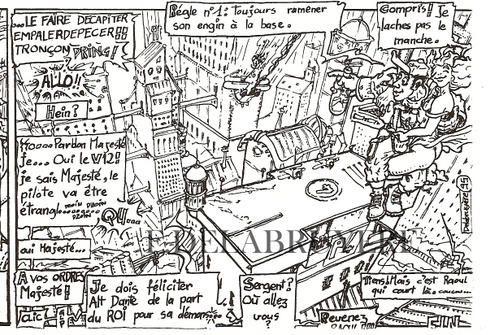 ...LE FAIRE DECAPITER
EMPALER DEPECER!!
TRONÇON DRING!!
ALLO!!
Hein?
Pardon Majesté
Je... Oui le V12!!
je sais Majesté, le
pilote va être
étrangle...
oui Majesté...
A vos ORDRES
Majesté!!
CLIC
Règle n°1: toujours ramèner
son engin à la base.
Compris!! Je
laches pas le
manche.
Je dois féliciter
Alt Dante de la part
du ROI pour sa démar
Sergent?
Où allez
vous?
Tiens! Mais c'est Raoul
qui court là
Revenez
E DELABRUYERE